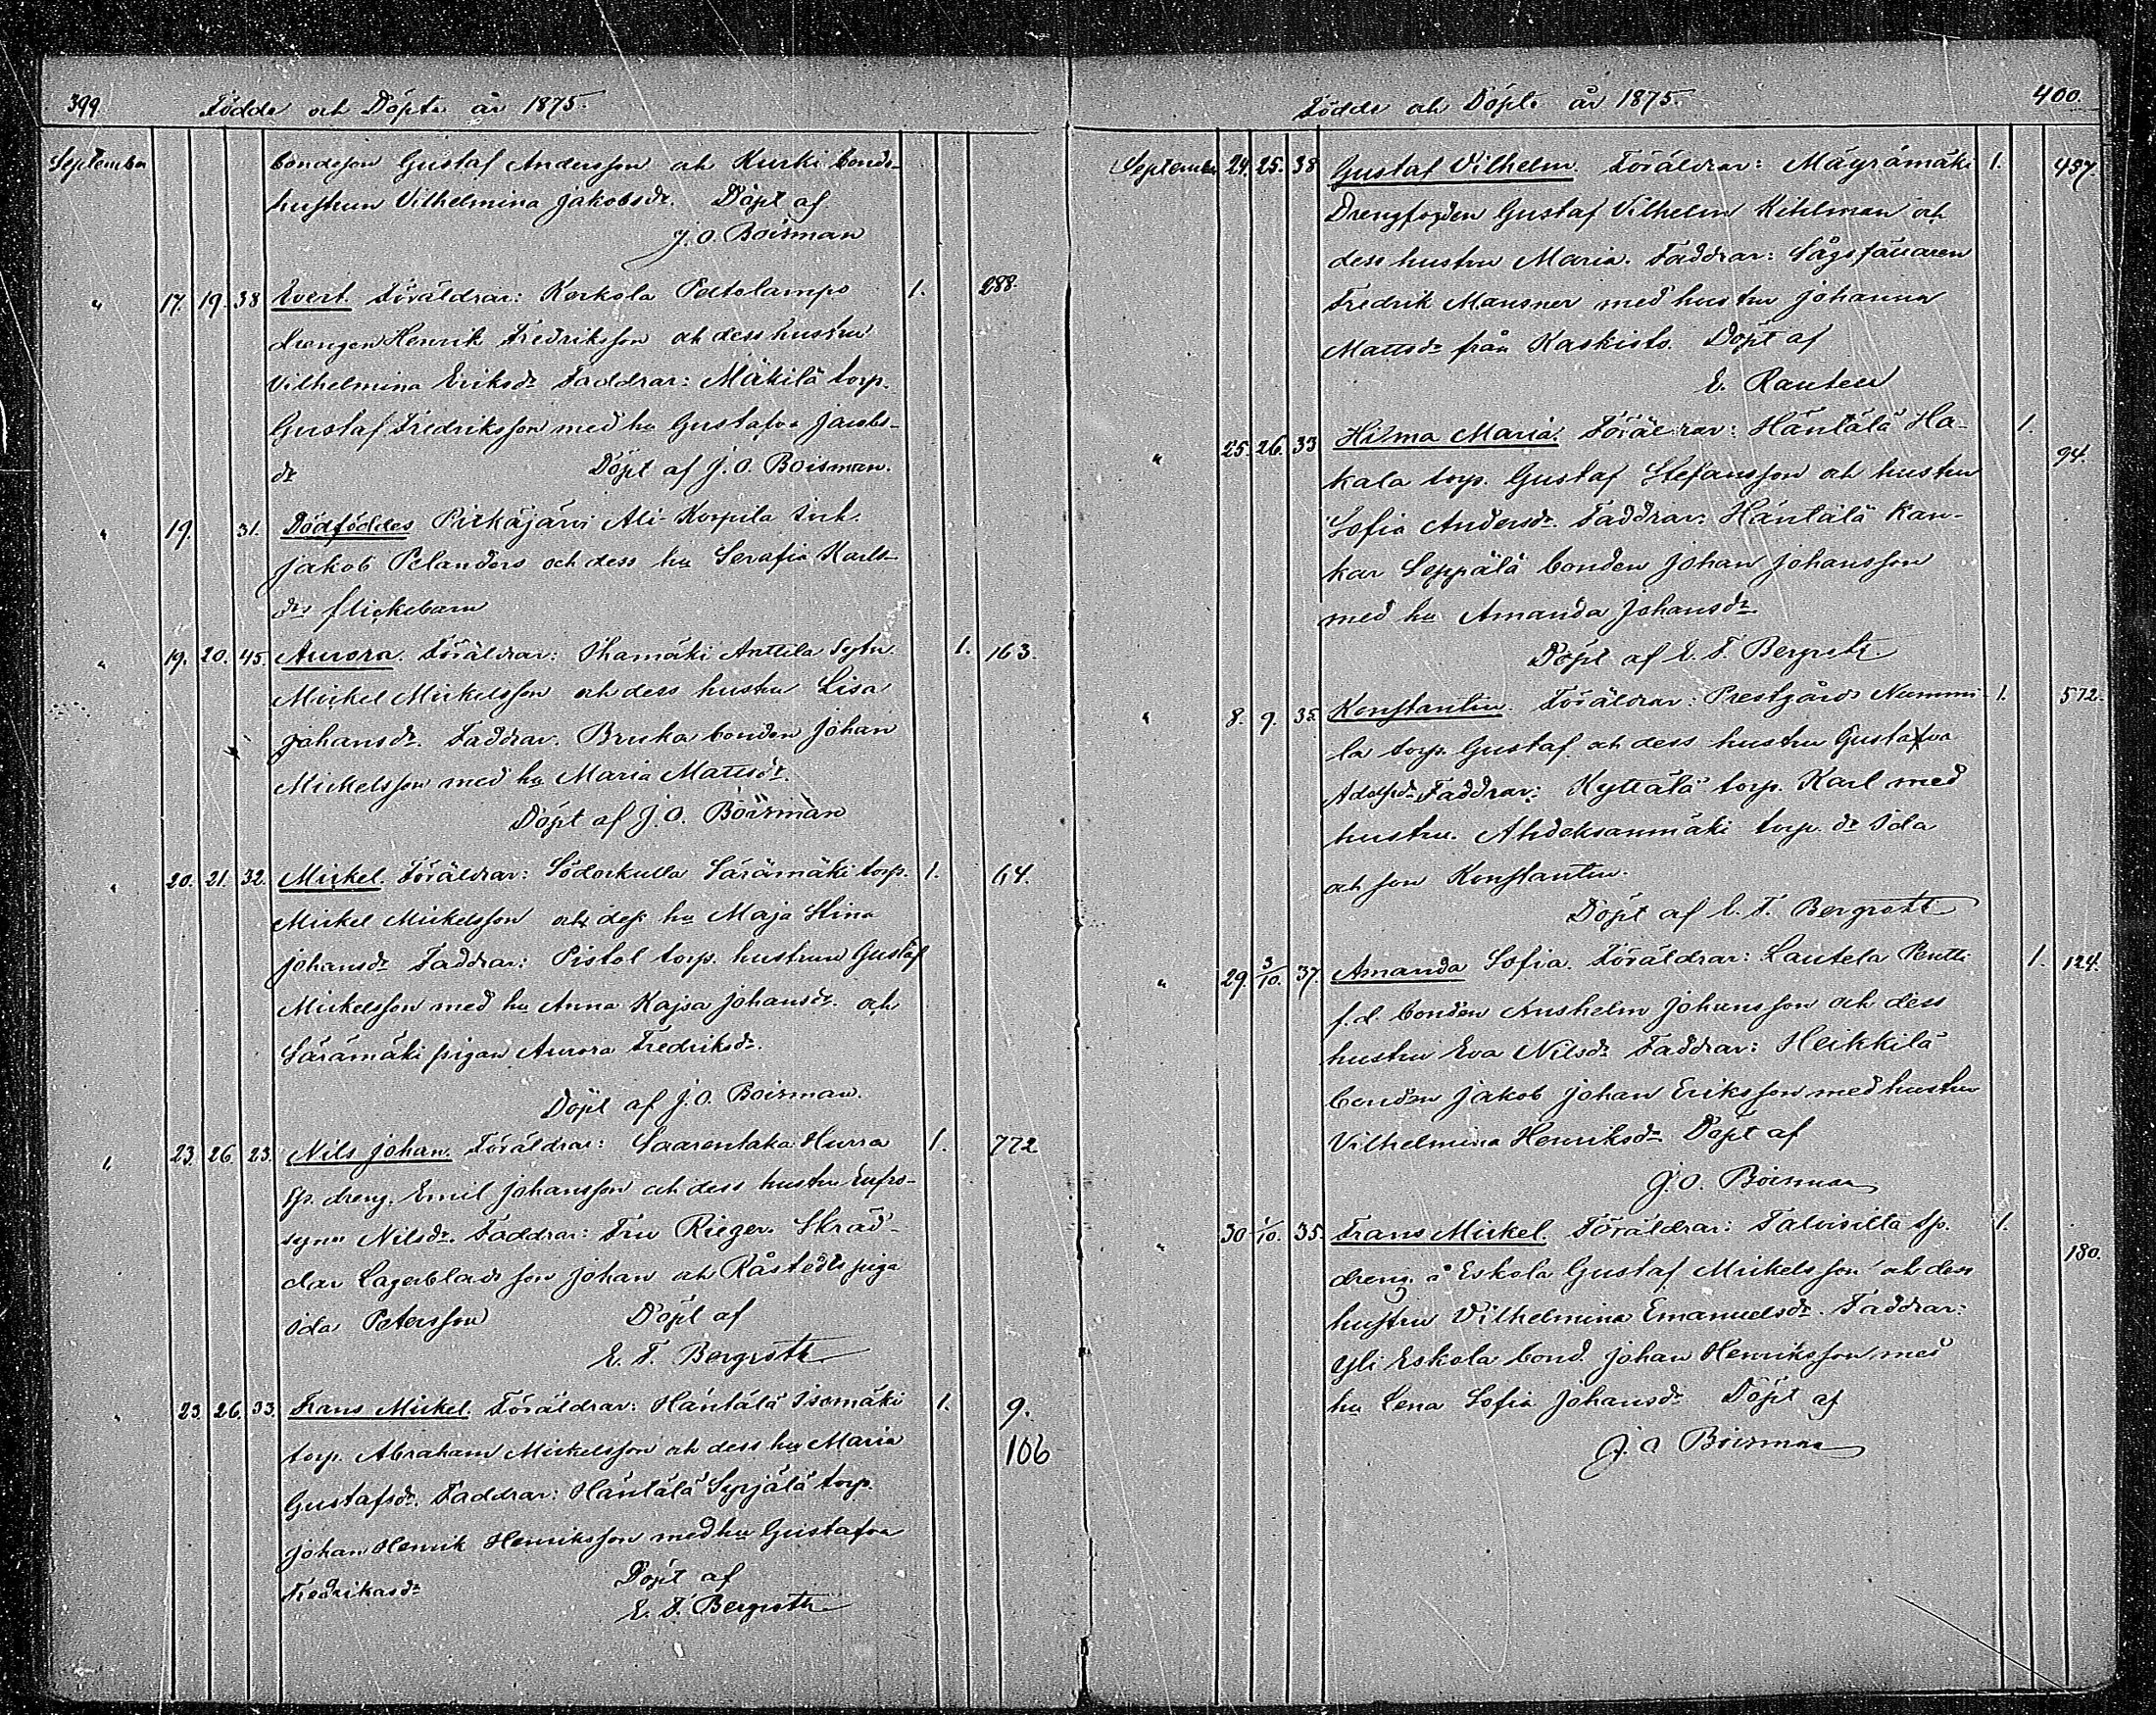 399. Födde och Döpte år 1875.
September bondeson Gustaf Andersson och Kurki bonde-
hustrun Vilhelmina Jakobsdr. Döpt af
J. O. Boisman
" 17. 19. 38 Evert. Föräldrar: Kerkola Peltolampo 1. 288.
drengen Henrik Fredriksson och dess hustru
Vilhelmina Eriksdr Faddrar: Mäkilä torp.
Gustaf Fredriksson med hu Gustafva Jacobs-
dr Döpt af J. O. Boisman.
" 19. 31. Dödföddes Pitkäjärvi Ali-Korpila inh.
Jakob Pelanders och dess hu Serafia Karls-
drs flickebarn
" 19. 20. 45. Aurora. Föräldrar: Ihamäki Anttila Sytn.
 1. 163.
Mickel Mickelsson och dess hustru Lisa
Johansdr. Faddrar. Bruka bonden Johan
Mickelsson med hu Maria Mattsdr.
Döpt af J. O. Boisman
" 20. 21. 32. Mickel. Föräldrar: Söderkulla Särämäki torp. 1. 64.
Mickel Mickelsson och dess hu Maja Stina
Johansdr Faddrar: Pistol torp. hustrun Gustaf
Mickelsson med hu Anna Kajsa Johansdr. och
Särämäki pigan Aurora Fredriksdr.
Döpt af J. O. Boisman.
" 23. 26. 23. Nils Johan. Föräldrar: Saarentaka Hurra 1. 772
Sp. dreng. Emil Johansson och dess hustru Eufro-
syne Nilsdr. Faddrar: Fru Rieger. Skräd-
dar Lagerblads son Johan och Råstedts piga
Ida Petersson Döpt af
E. F. Bergroth
" 23. 26. 33. Frans Mickel. Föräldrar: Häntälä Isomäki 1. 9.
torp. Abraham Mickelsson och dess hu Maria 106
Gustafsdr. Faddrar: Häntälä Syrjälä torp.
Johan Henrik Henriksson med hu Gustafva
Fredriksdr Döpt af
E. F. Bergroth
Födde och Döpte år 1875. 400.
September 24. 25. 38 Gustaf Vilhelm. Föräldrar: Mäyrämäki 1. 437.
Drengfogden Gustaf Vilhelm Kihlman och
dess hustru Maria. Faddrar: Sågställaren
Fredrik Mansner med hustru Johanna
Mattsdr från Kaskisto. Döpt af
E. Rauteel
" 25. 26. 33 Hilma Maria. Föräldrar: Häntälä Ha- 1. 94.
kala torp. Gustaf Stefansson och hustru
Sofia Andersdr. Faddrar: Häntälä Kan-
kar Seppälä bonden Johan Johansson
med hu Amanda Johansdr.
Döpt af E. F. Bergroth.
" 8. 9. 35. Konstantin. Föräldrar: Prestgårds Nummi 1. 572.
la torp. Gustaf och dess hustru Gustafva
Adolfsdr Faddrar: Kyttälä torp. Karl med
hustru. Ahdeksanmäki torp. dr Ida
och son Konstantin.
Döpt af E. F. Bergroth
" 29. 3/10. 37. Amanda Sofia. Föräldrar: Lautela Pentti 1. 124.
f. d. bonden Anshelm Johansson och dess
hustru Eva Nilsdr Faddrar: Heikkilä
bonden Jakob Johan Eriksson med hustru
Vilhelmina Henriksdr Döpt af
J. O. Boisman
" 30 1/10. 35. Frans Mickel. Föräldrar: Talvisilta Sp. 1. 180.
dreng. å Eskola Gustaf Mickelsson och dess
hustru Vilhelmina Emanuelsdr. Faddrar:
Yli Eskola bond. Johan Henriksson med
hu Lena Sofia Johansdr Döpt af
J. O Boisman